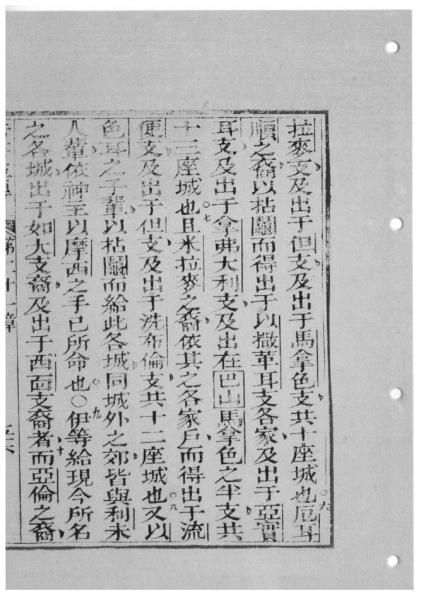 拉麥支及出于但支及出于馬拿色支共十座城也○六厄耳
順之裔以拈鬮而得出于以撒革耳支各家及出于亞實
耳支及出于拿弗大利支及出在巴山馬拿色之半支共
十三座城也○七且米拉麥之裔依其之各家戶而得出于流
便支及出于但支及出于洗布倫支共十二座城也○八又以
色耳之子輩以拈鬮而給此各城同城外之郊皆與利未
人輩依神主以摩西之手已所命也○九伊等給現今所名
之各城出于如大支裔及出于西面支裔者十而亞倫之裔
第二十一章